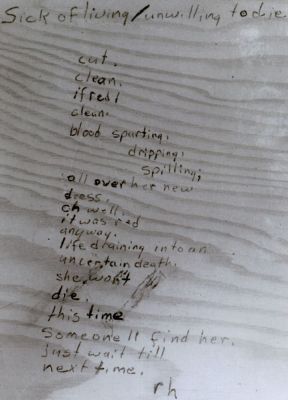 Sick of living/unwilling to die
cut.
clean.
if red!
clean.
blood spurting.
dripping.
spilling;
all over her new
dress.
oh well.
it was red
anyway.
life draining into an
uncertain death.
she won't
die.
this time
someone'll find her.
just wait till
next time.
rh